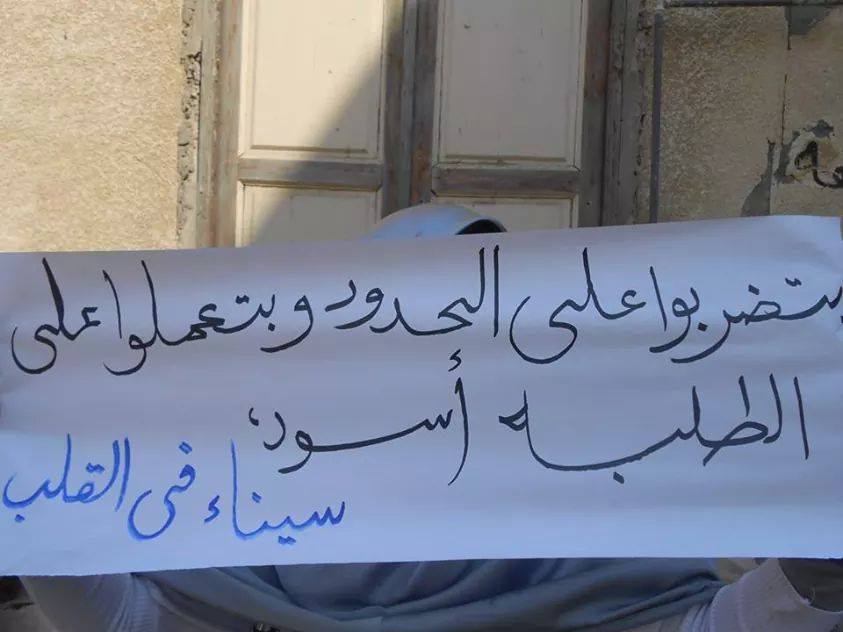 بتضربوا على الحدود وبتعملوا على
الطلبه أسود،
سيناء فى القلب